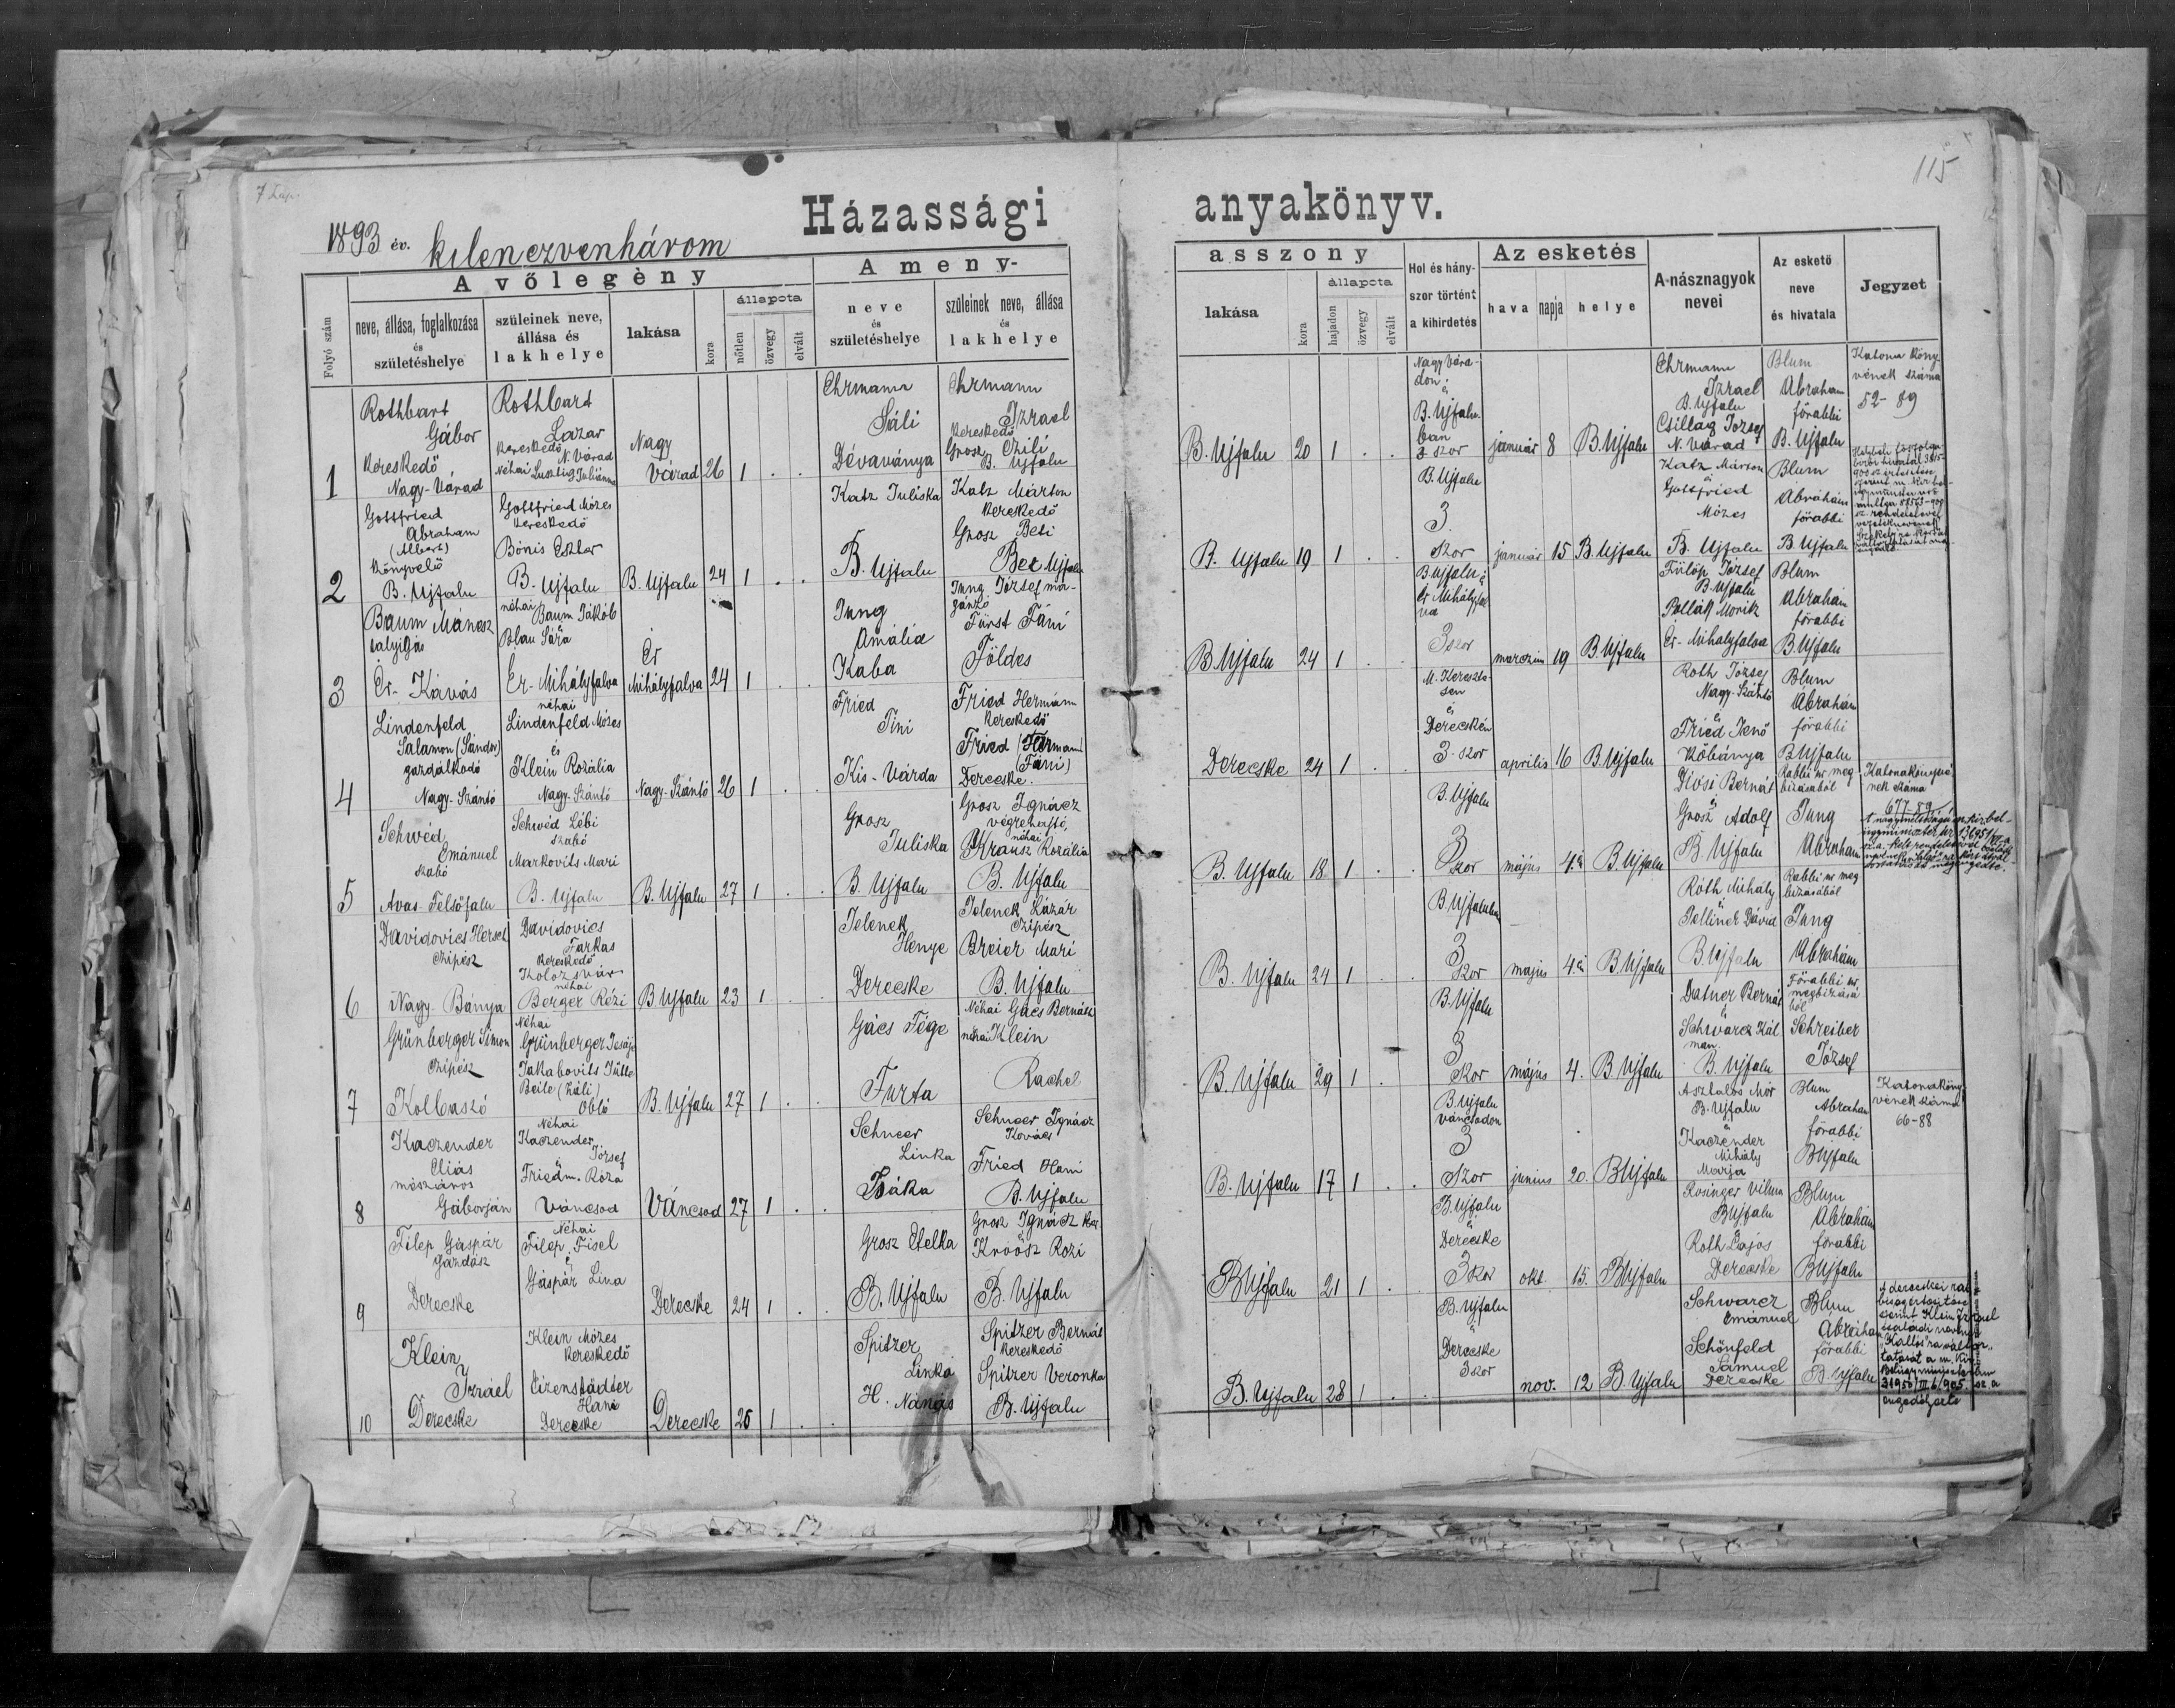 115
7 Lap.
Házassági anyakönyv.
1893 év. kilenczvenhárom
A vőlegény
A meny-
asszony
Hol és hány-
szor történt
a kihirdetés
Az esketés
A násznagyok
nevei
Az eskető
neve
és hivatala
Jegyzet
Folyó szám
neve, állása, foglalkozása
és
születéshelye
szüleinek neve,
állása és
lakhelye
lakása
kora
állapota
nőtlen
özvegy
elvált
neve
és
születéshelye
szüleinek neve, állása
és
lakhelye
lakása
kora
állapota
hajadon
özvegy
elvált
hava
napja
helye
1
Rothbart
Gábor
Kereskedő
Nagy-Várad
Rothbart
Lazar
Kereskedő
N. Várad
Néhai Lusztig Juliánna
Nagy
Várad
26
1
Ehrmann
Sáli
Dévaványa
Ehrmann
Izrael
Kereskedő
Grosz Czili
B. Ujfalu
B. Ujfalu
20
1
Nagy Vára-
don
és
B. Ujfalu-
ban
3 szor
január
8
B. Ujfalu
Ehrmann
Izrael
B. Ujfalu
Csillag József
N. Várad
Blum
Abraham
főrabbi
B. Ujfalu
Katona Köny-
vének száma
52-89
2
Gottfried
Abraham
(Albert)
Könyvelő
B. Ujfalu
Gottfried Mózes
Kereskedő
Bónis Eszter
B. Ujfalu
B. Ujfalu
24
1
Katz Juliska
B. Ujfalu
Katz Márton
Kereskedő
Grosz Beti
Ber Ujfalu
B. Ujfalu
19
1
B. Ujfalu
3
szor
január
15
B. Ujfalu
Katz Márton
és
Gottfried
Mózes
B. Ujfalu
Blum
Abrahám
főrabbi
B. Ujfalu
3
Baum Mánesz
Ér-Kávás
néhai
Baum Jakób
Blau Sára
Ér-Mihályfalva
Ér
Mihályfalva
24
1
Jung
Amália
Kaba
Jung József ma-
gánzó
Fürst Fáni
Földes
B. Ujfalu
24
1
B. Ujfalu és
Ér Mihályfal
va
3 szor
marczius
19
B. Ujfalu
Fülöp József
B. Ujfalu
Pollák Moritz
Ér-Mihályfalva
Blum
Abrahám
főrabbi
B. Ujfalu
4
Lindenfeld
Salamon (Sándor)
gazdálkodó
Nagy-Szántó
néhai
Lindenfeld Mózes
és
Klein Rozália
Nagy-Szántó
Nagy-Szántó
26
1
Fried
Tini
Kis-Várda
Fried Hermánn
Kereskedő
Fried (Hermann)
(Fáni)
Derecske.
Derecske
24
1
M. Kereszte-
sen
és
Derecskén
3-szor
április
16
B. Ujfalu
Roth József
Nagy-Szántó
és
Fried Jenő
Kőbánya
Blum
Abrahám
főrabbi
B Ujfalu
5
Schwéd
Emánuel
szabó
Avas-Felsőfalu
Schwéd Lébi
szabó
Markovits Mari
B. Ujfalu
B. Ujfalu
27
1
Grosz
Juliska
B. Ujfalu
Grosz Ignácz
végrehajtó,
néhai
Krausz Rozália
B. Ujfalu
B. Ujfalu
18
1
B. Ujfalu
3
szor
május
4én
B. Ujfalu
Diósi Bernát
és
Grosz Adolf
B. Ujfalu
Rabbi ur meg
bizásából
Jung
Abraham
Katonakönyvé
nek száma
677-89
6
Davidovics Hersel
Czipész
Nagy-Bánya
Davidovics
Farkas
Kereskedő
Kolozsvár
néhai
Berger Rézi
B Ujfalu
23
1
Jelenek
Henye
Derecske
Jelenek Lázár
Czipész
Breier Mari
B. Ujfalu
B. Ujfalu
24
1
B Ujfaluban
3
szor
május
4én
B Ujfalu
Róth Mihály
és
Pelliner Dávid
B Ujfalu
Rabbi ur meg
bizásából
Jung
Abrahám
7
Grünberger Simon
Czipész
Kolbaszó
Néhai
Grünberger Jesája
Jakabovits Jütte
Beile (Záli)
Obló
B. Ujfalu
27
1
Gács Fége
Furta
Néhai Gács Bernáth
néhai Klein
Rachel
B. Ujfalu
29
1
B. Ujfalu
3
szor
május
4.
B. Ujfalu
Datner Bernát
és
Schwarcz Kál
man
B. Ujfalu
Főrabbi ur
megbizásá
ból
Schreiber
József
8
Kaczender
Eliás
mészáros
Gáborján
Néhai
Kaczender
József
Friedm. Róza
Váncsod
Váncsod
27
1
Schneer
Linka
Báka
Schneer Ignácz
Kovács
Fried Hani
B. Ujfalu
B. Ujfalu
17
1
B. Ujfalu
Váncsodon
3
szor
junius
20.
B Ujfalu
Asztalos Mór
B. Ujfalu
és
Kaczender
Mihály
Marja
Blum
Abraham
főrabbi
B Ujfalu
Katonaköny
vének száma
66-88
9
Filep Gáspár
Gazdász
Derecske
Néhai
Filep Fisel
és
Gáspár Lina
Derecske
24
1
Grosz Etelka
B. Ujfalu
Grosz Ignácz
Kroósz Rozi
B. Ujfalu
B Ujfalu
21
1
B. Ujfalu
és
Derecske
3 szor
okt.
15.
B Ujfalu
Rosinger Vilmos
B Ujfalu
és
Roth Lajos
Derecske
Blum
Abrahám
főrabbi
B Ujfalu
10
Klein
Izráel
Derecske
Klein Mózes
Kereskedő
Eizenstädter
Hani
Derecske
Derecske
25
1
Spitzer
Linka
H. Nánás
Spitzer Bernát
Kereskedő
Spitzer Veronka
B. Ujfalu
B. Ujfalu
28
1
B. Ujfalu
és
Derecske
3 szor
nov.
12
B Ujfalu
Schwarcz
Emánuel
Schönfeld
Sámuel
Derecske
Blum
Abrahám
főrabbi
B. Ujfalu
A derecskei
szerint Klein Izrael
családi nevének
"Kallós"ra változ-
tatását a m. kir.
Belügyminiszterium
engedélyezte